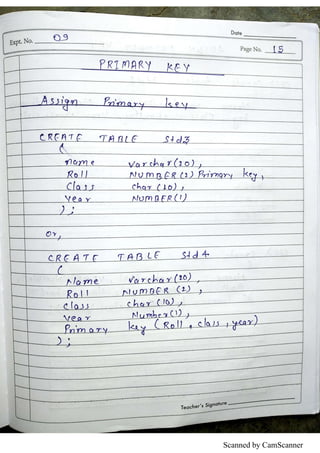 Date
Expt. No. 09
Page No. 15
PRIMARY KEY
Assign Primary key
CREATE TABLE Std3
(
name varchar(20),
Roll NUMBER(2) Primary key,
Class char(10),
Year NUMBER(1)
);
or,
CREATE TABLE Std4
(
Name varchar(20),
Roll NUMBER (2),
class char (10),
year Number(1),
Primary key (Roll, class, year)
);
Teacher's Signature
Scanned by CamScanner